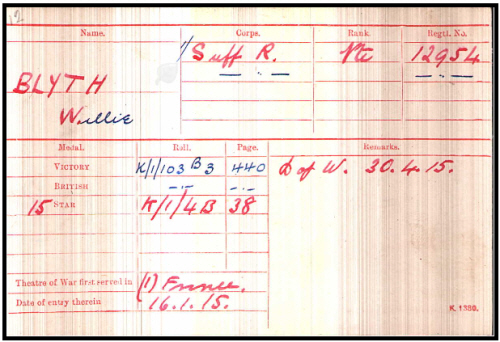 Name. Corps. Rank. Regtl. No.
1/ Suff R. Pte 12954
— · — — · —
BLYTH
Willie
Medal. Roll. Page. Remarks.
VICTORY K/1/103 B3 440 D of W. 30.4.15.
BRITISH — · — — · —
15 STAR K/1/4B 38
Theatre of War first served in (1) France.
Date of entry therein 16.1.15.
K. 1380.